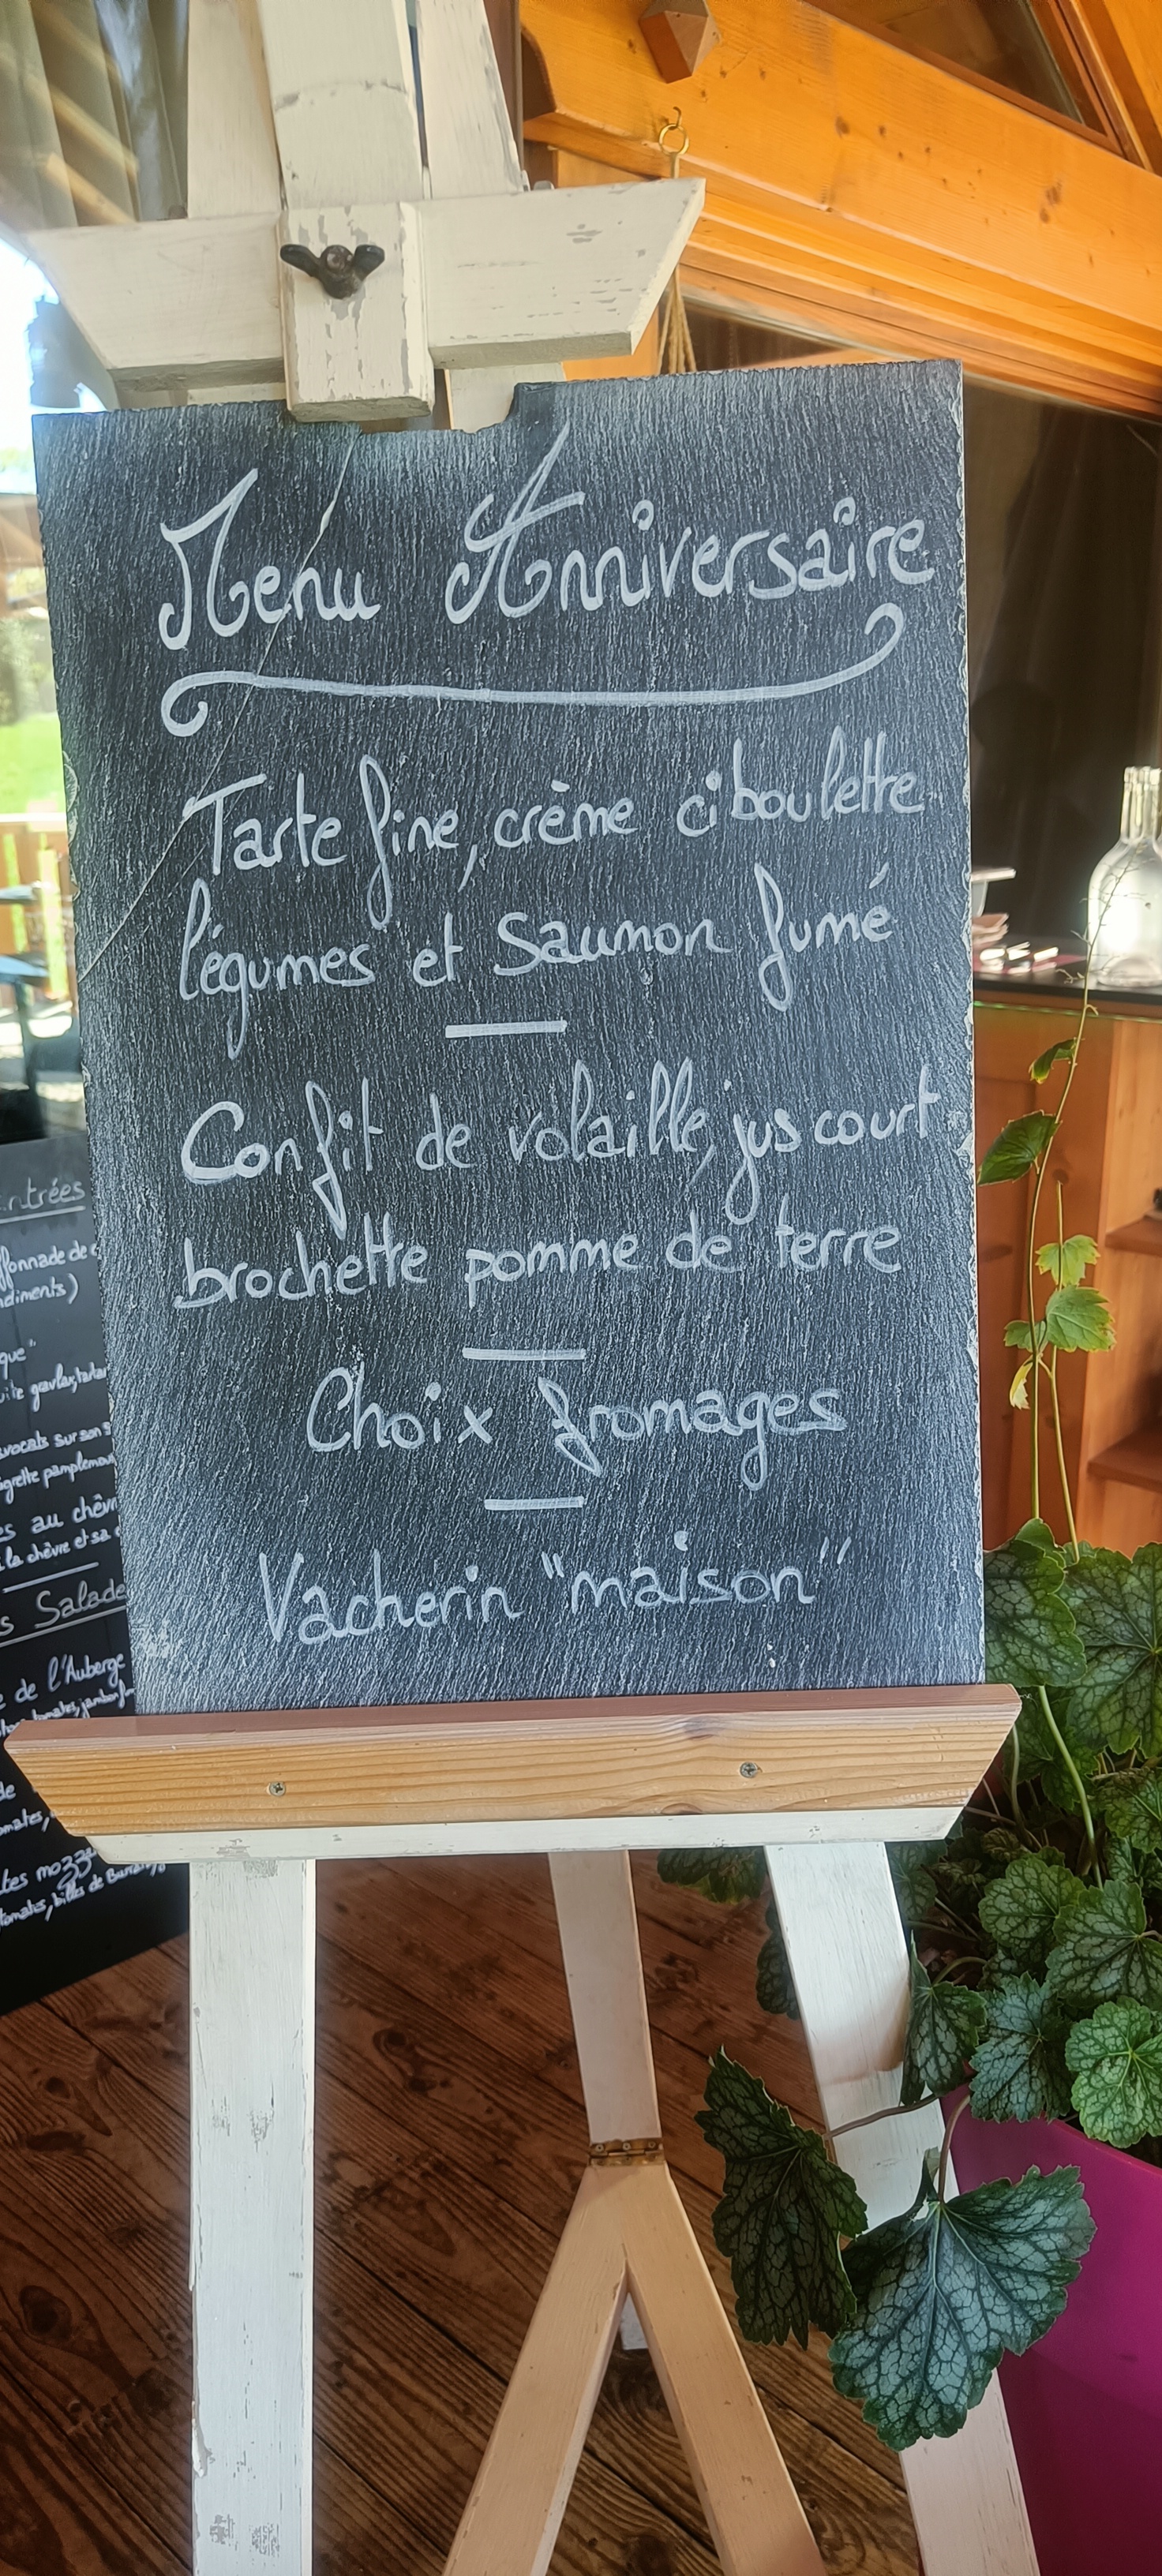 Menu Anniversaire
Tarte fine, crème ciboulette
légumes et Saumon fumé
Confit de volaille, jus court
brochette pomme de terre
Choix fromages
Vacherin "maison"
ntrées
ffonnade de
diments)
que"
gavlax, tatar
vocats sur son
grette pamplemou
es au chèvr
la chèvre et sa
s Salade
e de l'Auberge
tomates, jambon
de
omates,
tes mozza
tomates, billes de